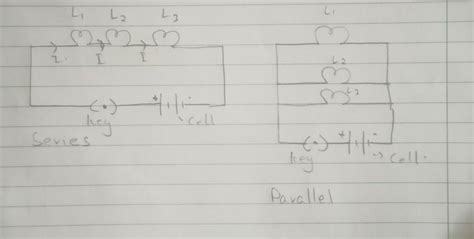 L1 L2 L3
I I I
+ -
Key Cell
Series
L1
L2
L3
+ -
Key Cell.
Parallel